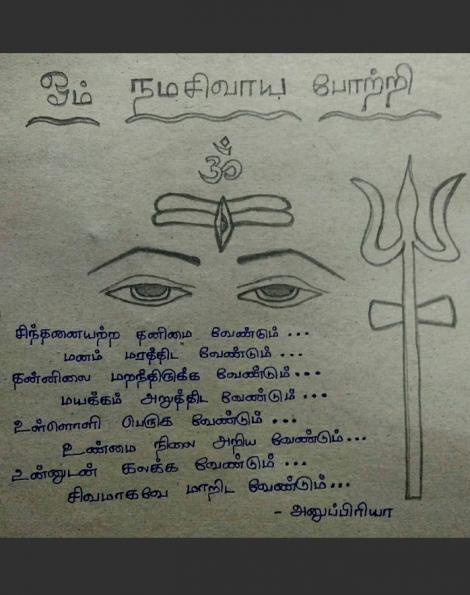 ஓம் நமசிவாய போற்றி
ॐ
சிந்தனையற்ற தனிமை வேண்டும் ...
மனம் மரத்திட வேண்டும் ...
தன்னிலை மறந்திருக்க வேண்டும் ...
மயக்கம் அறுத்திட வேண்டும் ...
உள்ளொளி பெருக வேண்டும் ...
உண்மை நிலை அறிய வேண்டும் ...
உன்னுடன் கலக்க வேண்டும் ...
சிவமாகவே மாறிட வேண்டும் ...
- அனுப்பிரியா